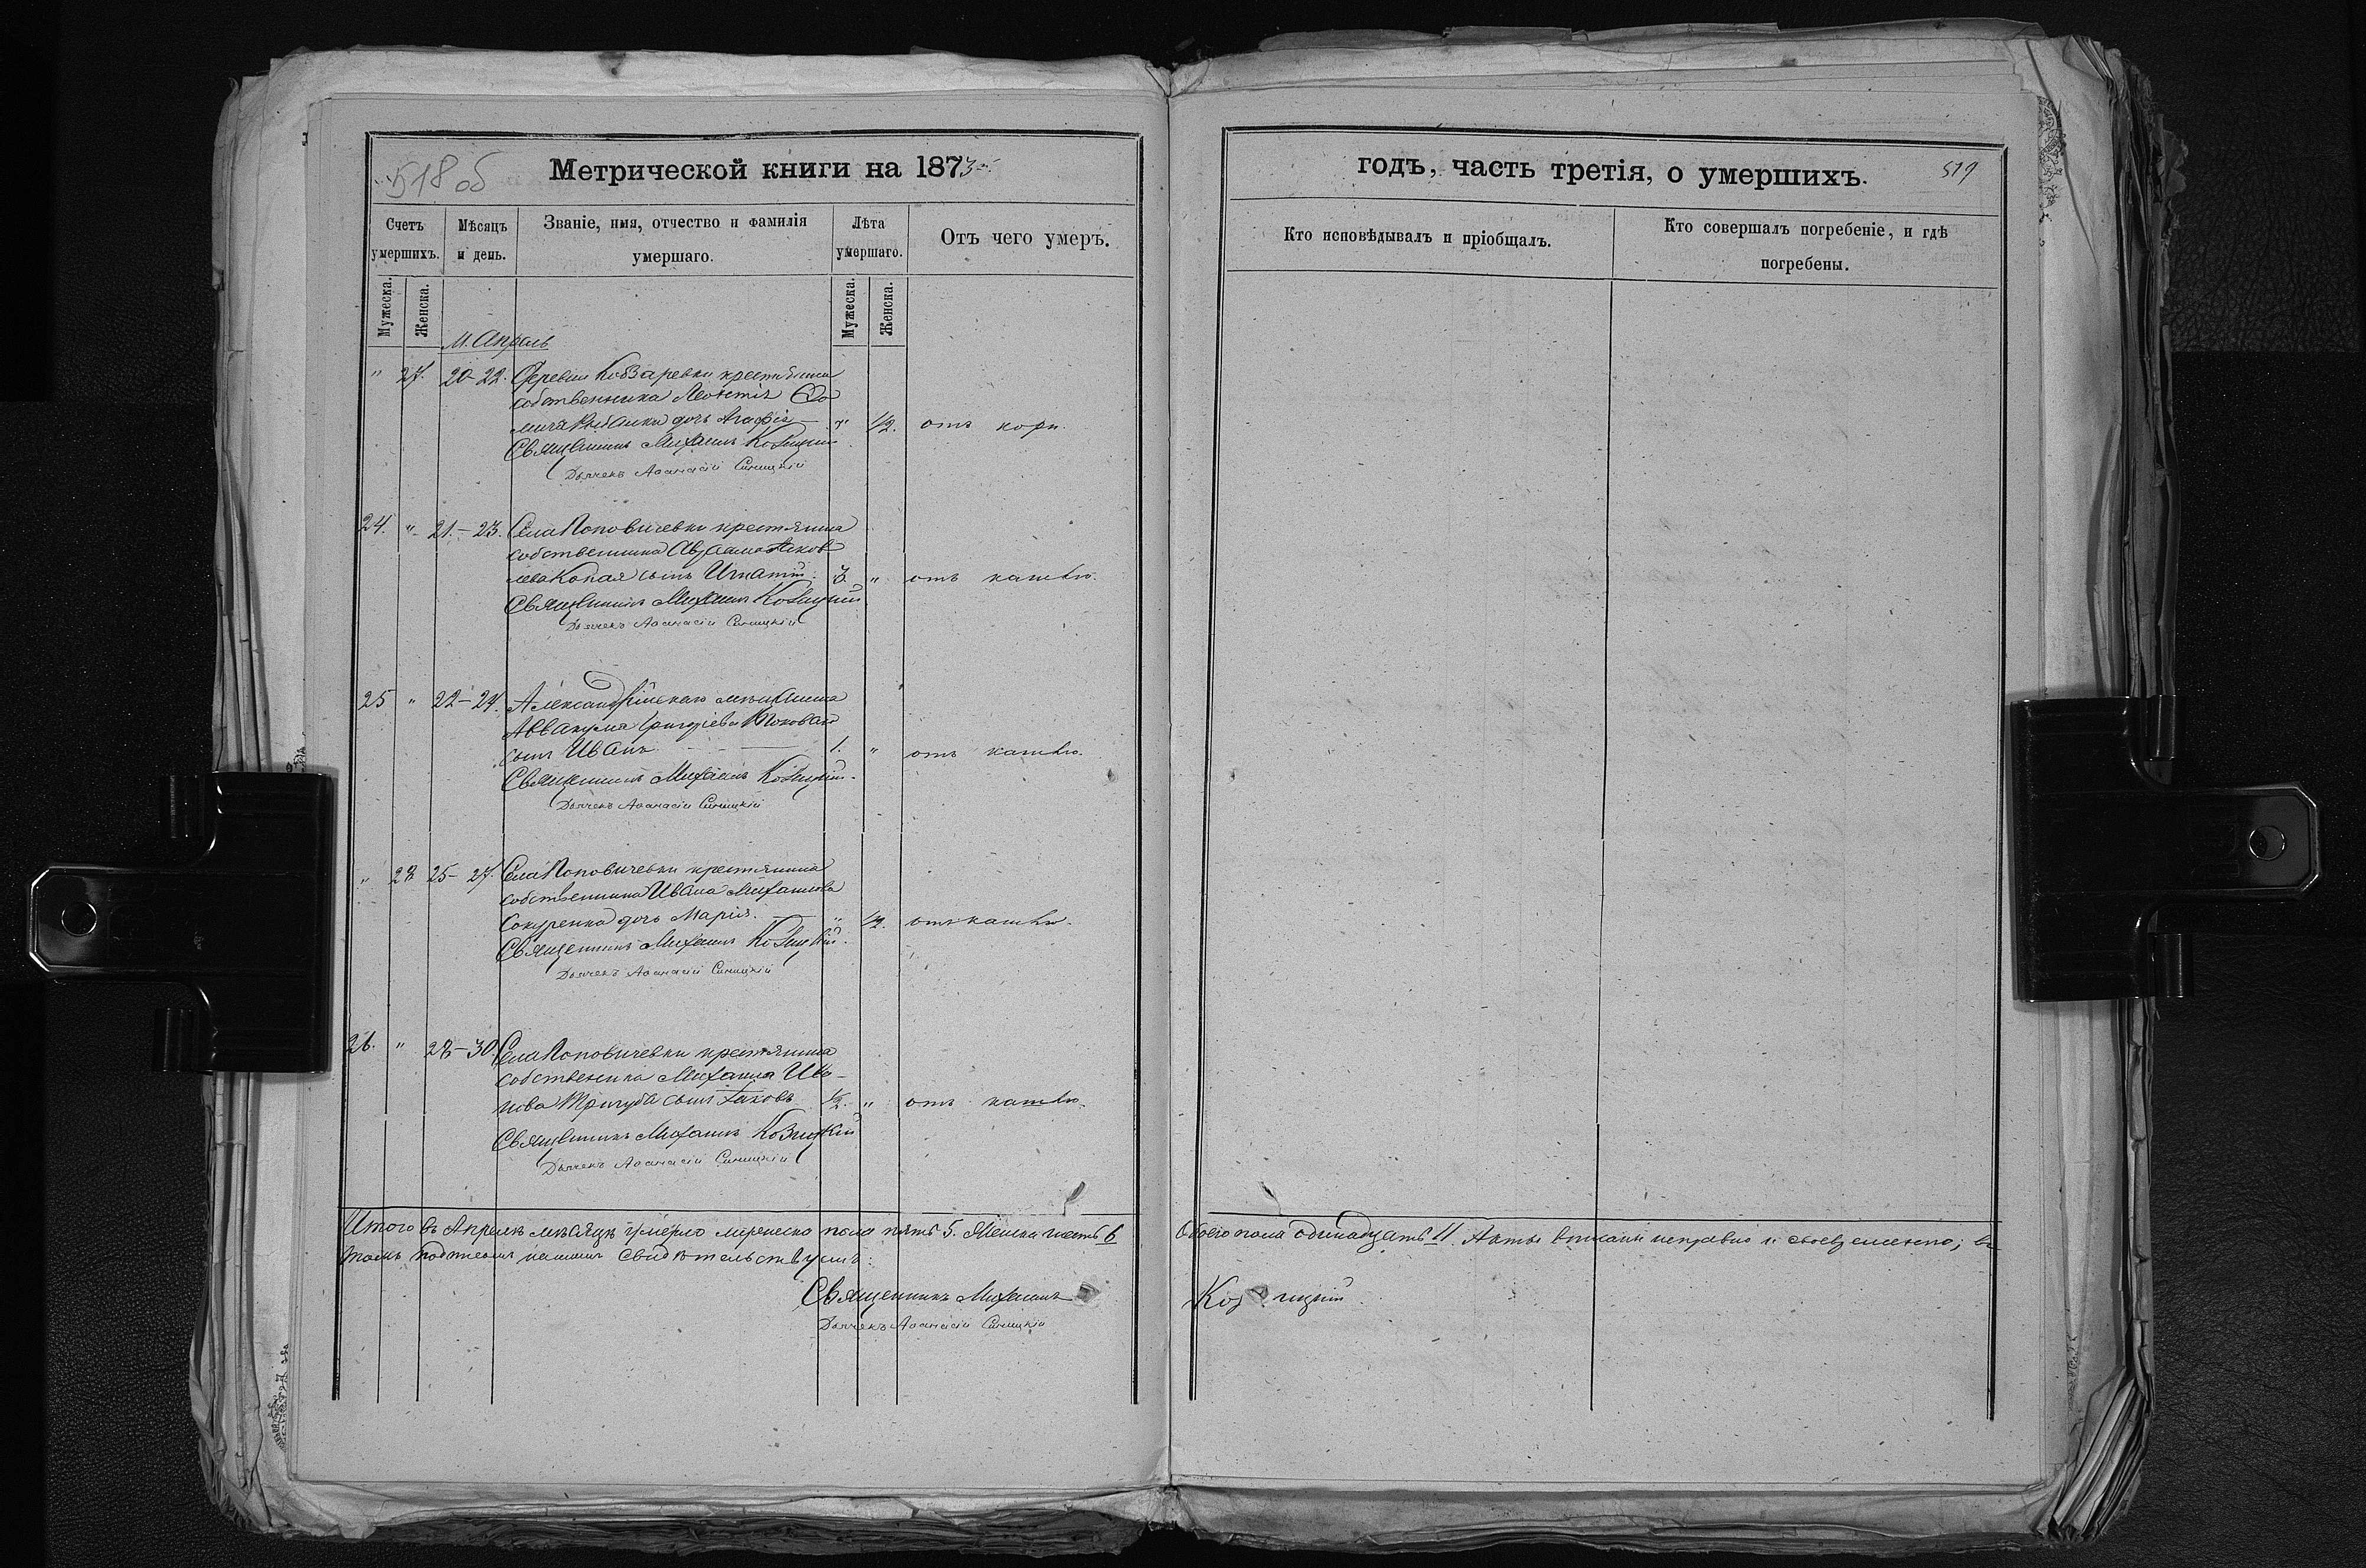 518 об
Метрической книги на 1873й
Счетъ умершихъ.
Мѣсяцъ и день.
Званіе, имя, отчество и фамилія умершаго.
Лѣта умершаго.
Отъ чего умеръ.
Мужеска.
Женска.
Мужеска.
Женска.
М. Апрѣль
" 27. 20-22. Деревни Кобзаревки крестьянина
собственника Леонтія Ѳо
мича дочь Агафія " 1/2. отъ кори.
Священникъ Михаилъ Козицкій
Дьячекъ Аѳанасій Синицкій
24. " 21.-23. Села Поповичевки крестянина
собственника Авраама Яков
лева Копая сынъ Игнатій. 3. " отъ кашлю.
Священникъ Михаилъ Козицкій
Дьячекъ Аѳанасій Синицкій
25 " 22-24. Александрійскаго мѣщанина
Аввакума Григоріева
сынъ Иванъ 1. " отъ кашлю.
Священникъ Михаилъ Козицкій.
Дьячекъ Аѳанасій Синицкій
" 28. 25-27. Села Поповичевки крестянина
собственника Ивана Михаилова
Сокуренка дочь Марія. " 1/2. отъ кашлю.
Священникъ Михаилъ Козицкій.
Дьячекъ Аѳанасій Синицкій
26. " 28-30 Села Поповичевки крестянина
собственника Михаила Ива-
нова Тригуба сынъ Іаковъ 1/2. " отъ кашлю.
Священникъ Михаилъ Козицкій
Дьячекъ Аѳанасій Синицкій
Итого въ Апрѣлѣ мѣсяцѣ умерло мужеска пола пять 5. Женска шесть 6
томъ подписомъ нашимъ свидѣтельствуемъ:
Священникъ Михаилъ
Дьячекъ Аѳанасій Синицкій
годъ, часть третія, о умершихъ.
519
Кто исповѣдывалъ и пріобщалъ.
Кто совершалъ погребеніе, и гдѣ погребены.
Обоего пола одинадцать 11. Акты вписаны исправно и своевременно; въ
Козицкій